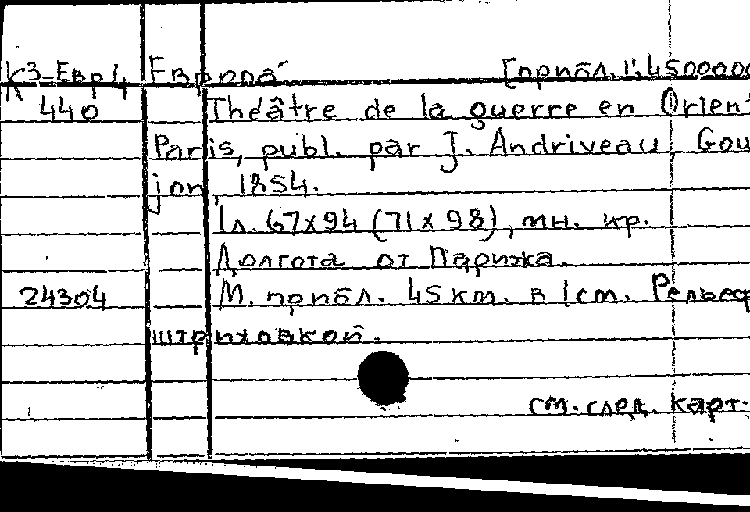 К3-Евр/4 Европа [прибл. 1:4500000
440 Théâtre de la guerre en Orient
Paris, publ. par J. Andriveau, Gou
jon, 1854.
1л. 67х94 (71х98), мн. кр.
Долгота от Парижа.
24304 М. прибл. 45 км. в 1см. Рельеф
штриховкой.
см. след. карт.